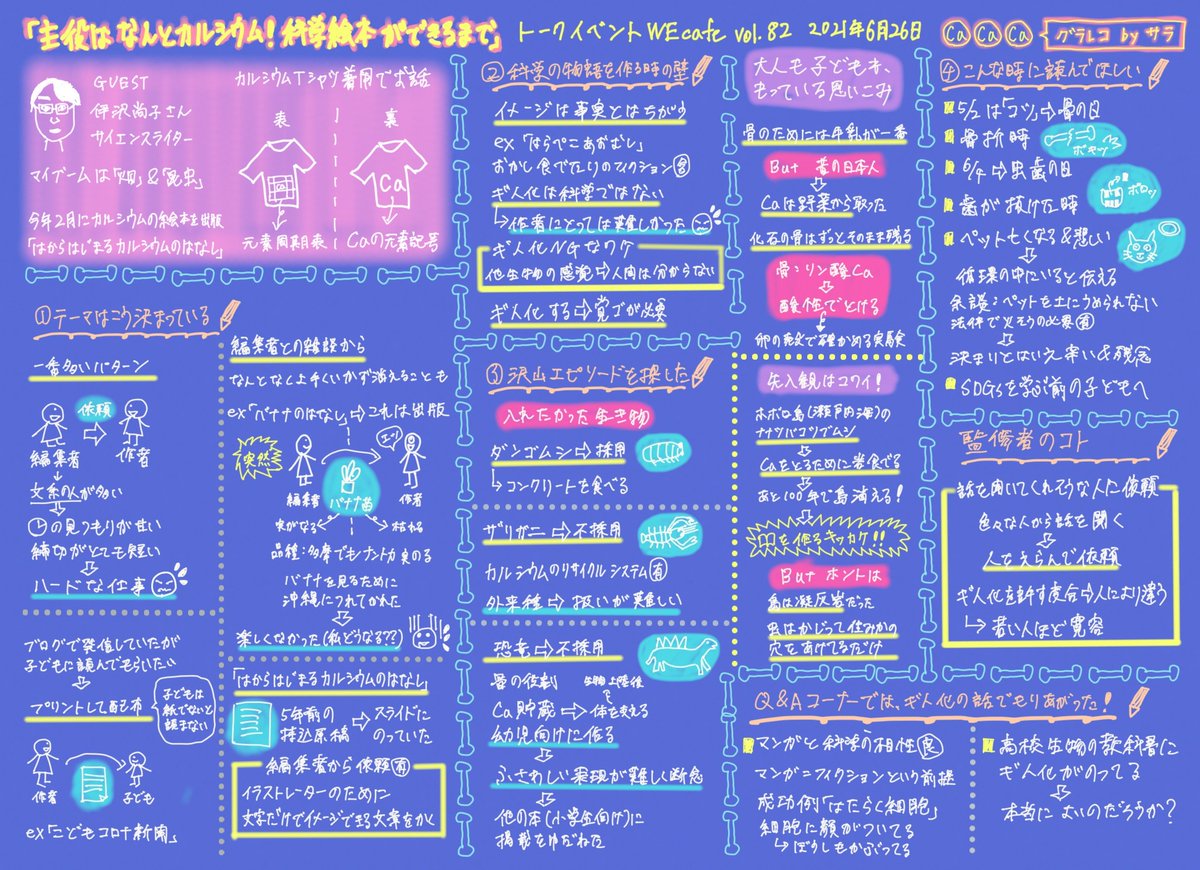 「主役はなんとカルシウム!科学絵本ができるまで」
トークイベントWEcafe vol.82 2021年6月26日
Ca Ca Ca
グラレコ by サラ
GUEST
伊沢尚子さん
サイエンスライター
マイブームは「畑」&「昆虫」
今年2月にカルシウムの絵本を出版
「はからはじまるカルシウムのはなし」
カルシウムTシャツ着用でお話
表
裏
Ca
元素周期表
Caの元素記号
①テーマはこう決まっている
一番多いパターン
依頼
編集者
作者
文系の人が多い
の見つもりが甘い
締切がとても短い
ハードな仕事
ブログで発信していたが
子どもに読んでもらいたい
プリントして配布
子どもは
紙でないと
読まない
作者
子ども
ex「こどもコロナ新聞」
編集者との雑談から
なんとなく上手くいかず消えることも
ex「バナナのはなし」→これは出版
突然
エッ!
編集者
バナナ苗
作者
実がなる
枯れる
品種:多摩でもナントカ実のる
バナナを見るために
沖縄につれてかれた
楽しくなかった(私どうなる??)
「はからはじまるカルシウムのはなし」
5年前の
持込原稿
スライドに
のっていた
編集者から依頼有
イラストレーターのために
文字だけでイメージできる文章をかく
②科学の物語を作る時の壁
イメージは事実とはちがう
ex「はらぺこあおむし」
おかし食べてたりのフィクション
ギ人化は科学ではない
作者にとっては難しかった
ギ人化NGなワケ
他生物の感覚→人間は分からない
ギ人化する→覚ゴが必要
③沢山エピソードを探した
入れたかった生き物
ダンゴムシ→採用
コンクリートを食べる
ザリガニ→不採用
カルシウムのリサイクルシステム有
外来種→扱いが難しい
恐竜→不採用
骨の役割
生物上陸後
Ca貯蔵→体を支える
幼児向けに作る
ふさわしい表現が難しく断念
他の本(小学生向け)に
掲載をゆだねた
大人も子どもも、
もっている思いこみ
骨のためには牛乳が一番
But 昔の日本人
Caは野菜から取った
化石の骨はずっとそのまま残る
骨:リン酸Ca
酸性でとける
卵の殻で確かめる実験
先入観はコワイ!
ホボロ島(瀬戸内海)の
ナナツバコツブムシ
Caをとるために岩食べる
あと100年で島消える!
を作るキッカケ!!
But ホントは
島は凝灰岩だった
虫はかじって住みかの
穴をあけてるだけ
④こんな時に読んでほしい
5/2は「コツ」→骨の日
骨折時
ボキッ
6/4→虫歯の日
歯が抜けた時
ポロッ
ペット亡くなる&悲しい
循環の中にいると伝える
余談:ペットを土にうめられない
法律で火そうの必要有
決まりとはいえ辛い&残念
SDGsを学ぶ前の子どもへ
監修者のコト
話を聞いてくれそうな人に依頼
色々な人から話を聞く
人をえらんで依頼
ギ人化を許す度合→人により違う
若い人ほど寛容
Q&Aコーナーでは、ギ人化の話でもりあがった!
マンガと科学の相性良
マンガ=フィクションという前提
成功例「はたらく細胞」
細胞に顔がついてる
ぼうしもかぶってる
高校生物の教科書に
ギ人化がのってる
本当によいのだろうか?